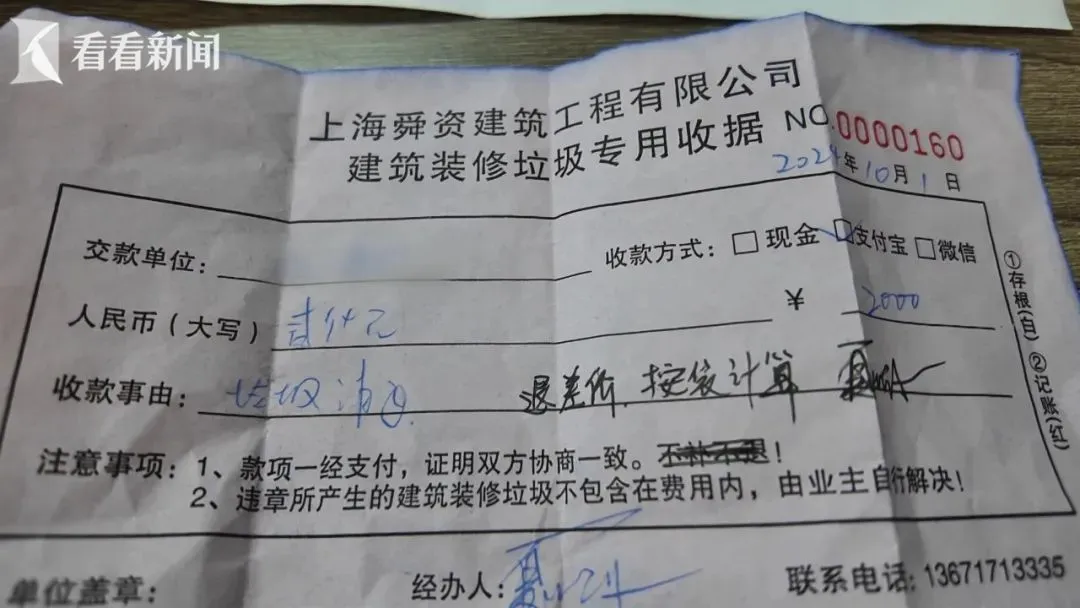 看看新闻
上海舜资建筑工程有限公司
建筑装修垃圾专用收据 NO.0000160
2024年10月1日
交款单位: 收款方式: □现金 ☑支付宝 □微信
人民币(大写) 贰仟元 ¥ 2000
收款事由: 垃圾清运 退差价.按袋计算
注意事项: 1、款项一经支付,证明双方协商一致。不补不退!
2、违章所产生的建筑装修垃圾不包含在费用内,由业主自行解决!
单位盖章: 经办人: 联系电话: 13671713335
①存根(白) ②记账(红)